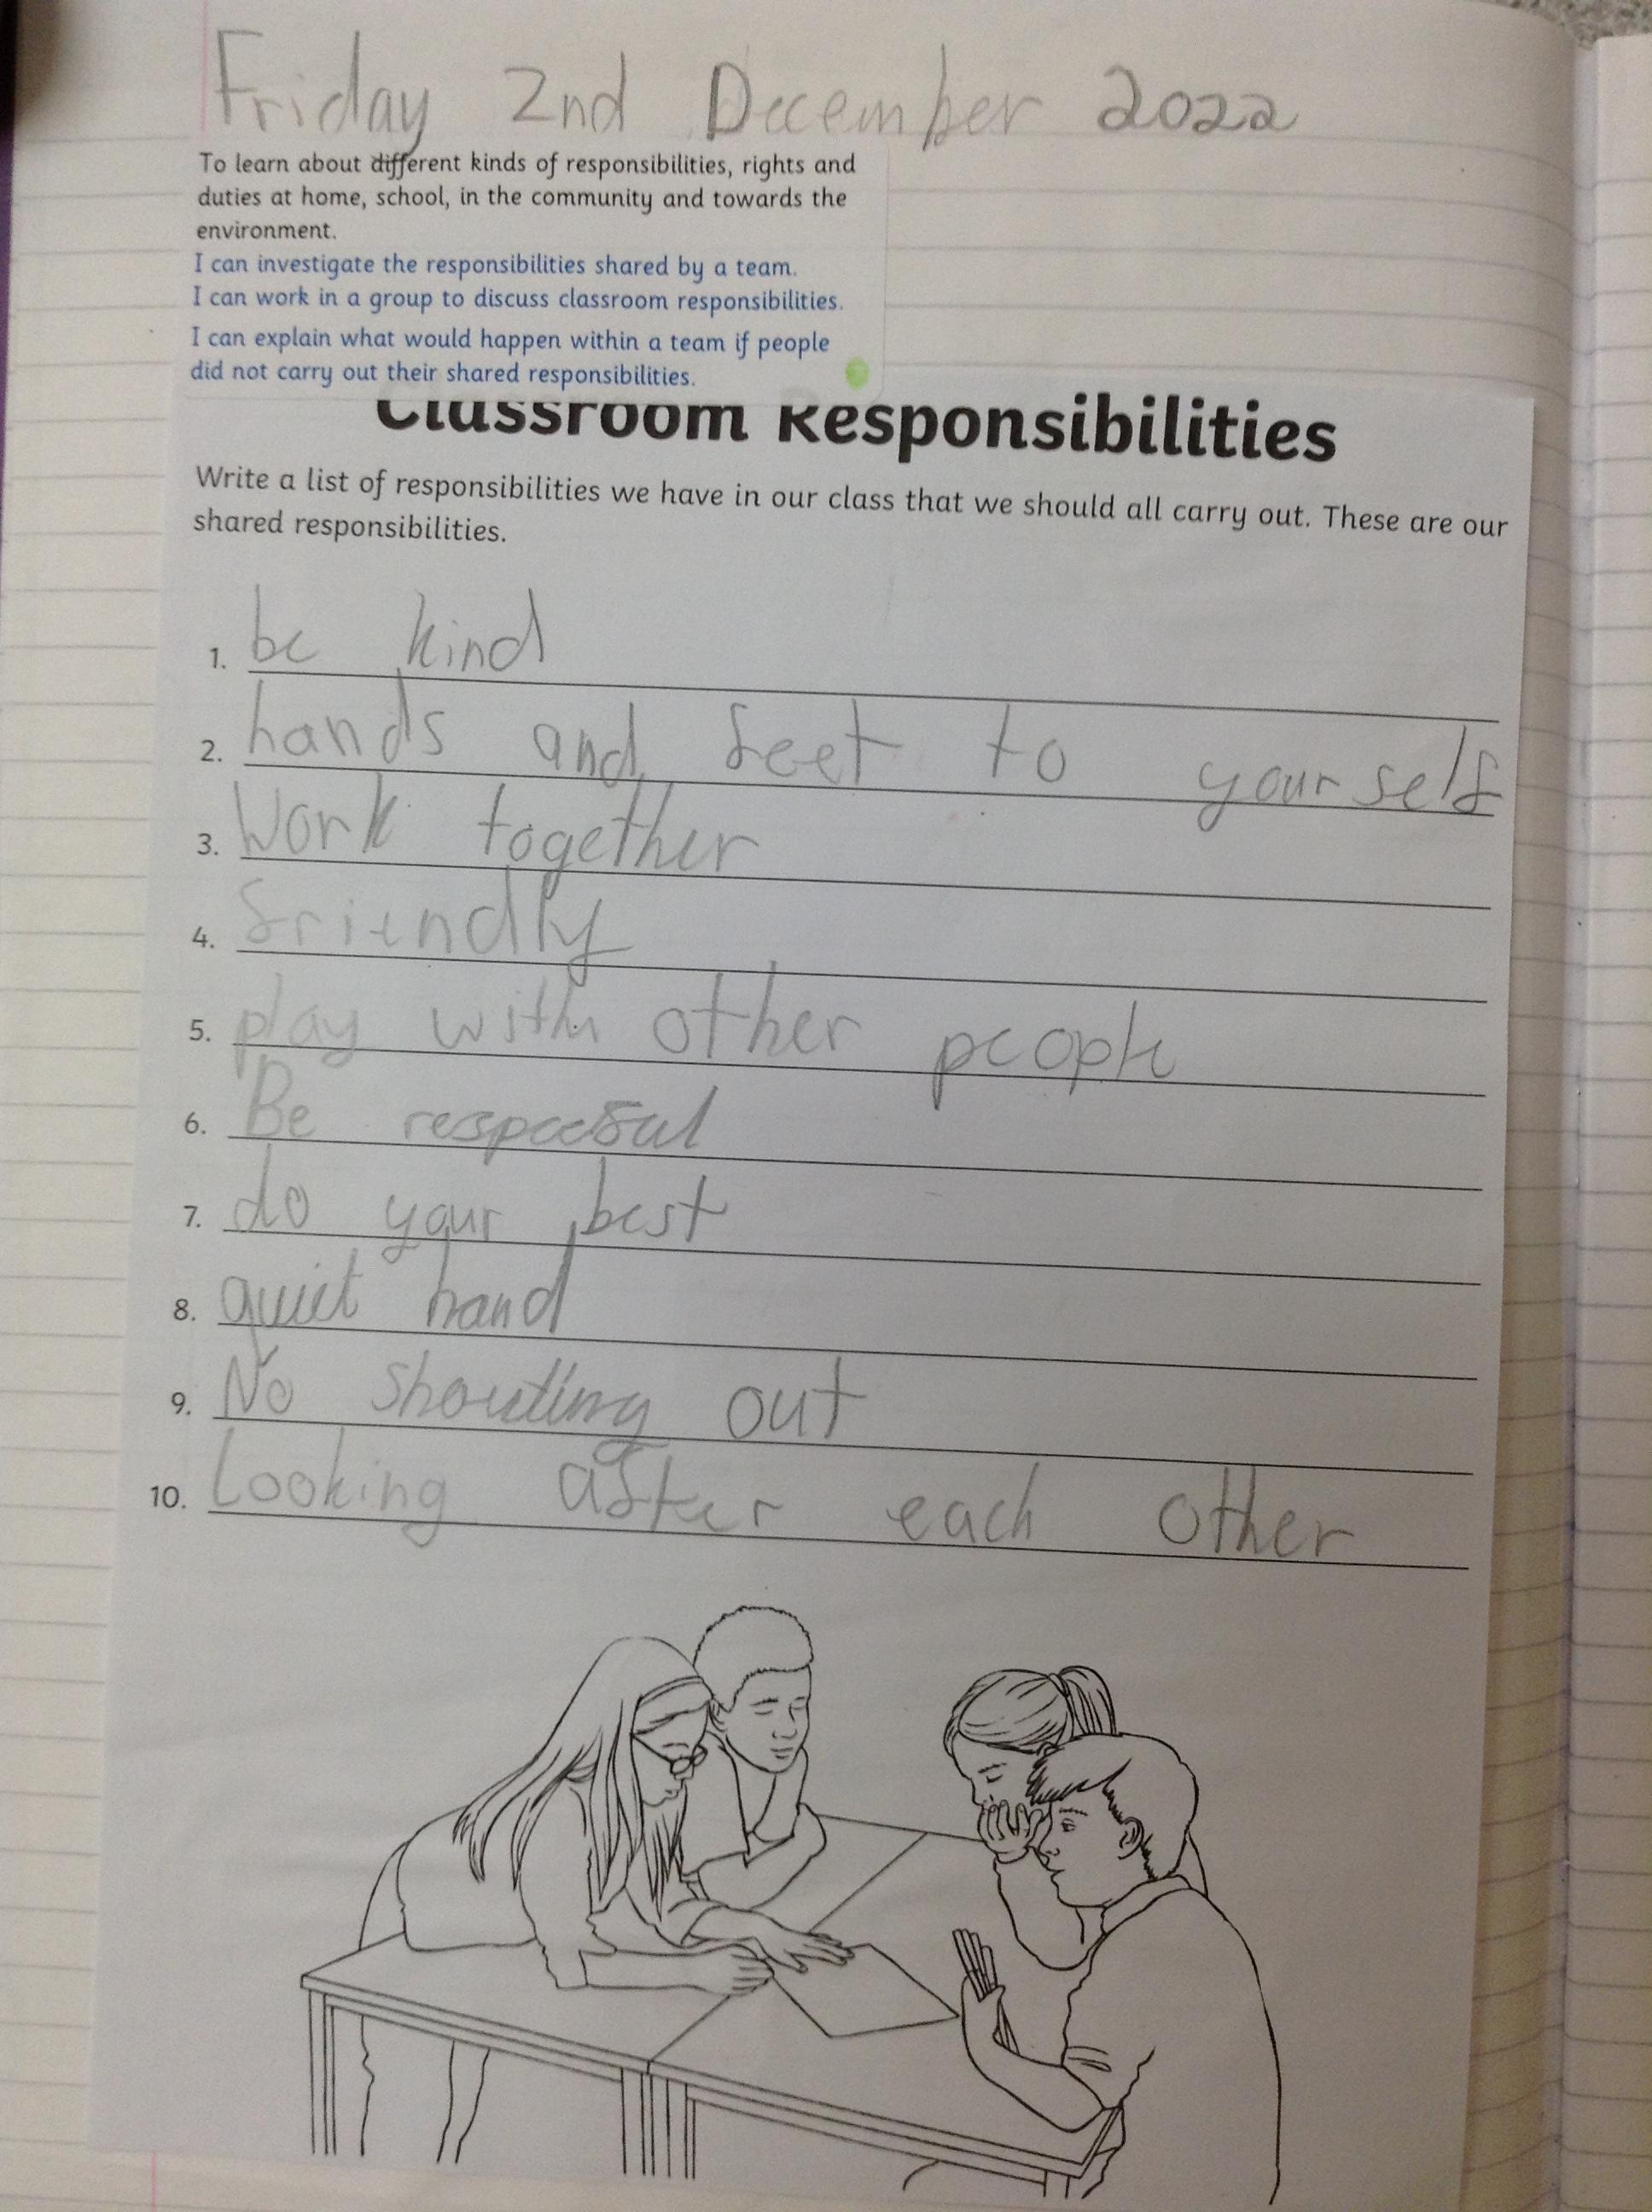 Friday 2nd December 2022
To learn about different kinds of responsibilities, rights and
duties at home, school, in the community and towards the
environment.
I can investigate the responsibilities shared by a team.
I can work in a group to discuss classroom responsibilities.
I can explain what would happen within a team if people
did not carry out their shared responsibilities.
Classroom Responsibilities
Write a list of responsibilities we have in our class that we should all carry out. These are our
shared responsibilities.
1. be kind
2. hands and feet to yourself
3. Work together
4. friendly
5. play with other people
6. Be respectful
7. do your best
8. quiet hand
9. No shouting out
10. Looking after each other